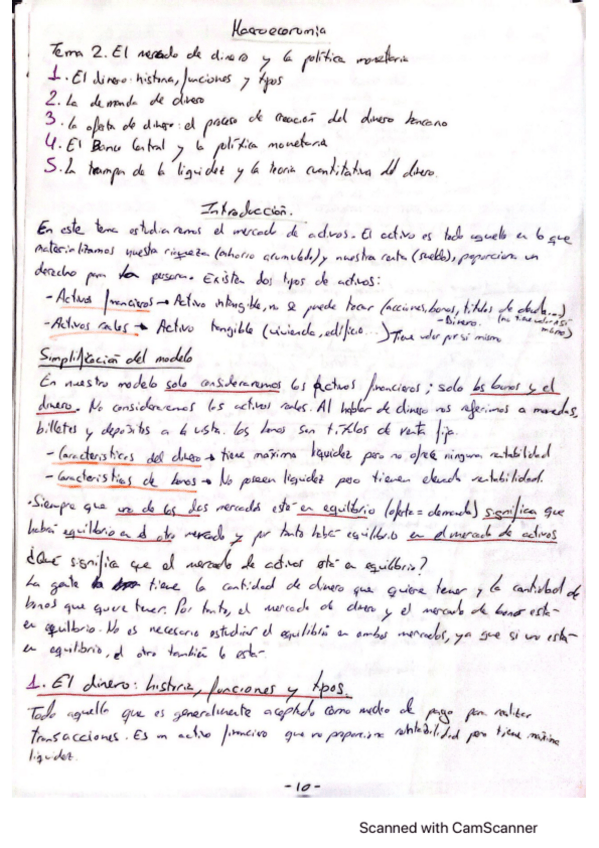 Macroeconomia
Tema 2. El mercado de dinero y la política monetaria
1. El dinero: historia, funciones y tipos
2. La demanda de dinero
3. La oferta de dinero: el proceso de creación del dinero bancario
4. El Banco Central y la política monetaria
5. La trampa de la liquidez y la teoría cuantitativa del dinero.
Introducción.
En este tema estudiaremos el mercado de activos. El activo es todo aquello en lo que
materializamos nuestra riqueza (ahorro acumulado) y nuestra renta (sueldo), proporciona un
derecho para la persona. Existen dos tipos de activos:
- Activos financieros → Activo intangible, no se puede tocar (acciones, bonos, títulos de deuda...)
- Dinero. (no tiene valor por sí mismo)
- Activos reales → Activo tangible (vivienda, edificio...) Tiene valor por si mismo
Simplificación del modelo
En nuestro modelo solo consideraremos los activos financieros; solo los bonos y el
dinero. No consideraremos los activos reales. Al hablar de dinero nos referimos a monedas,
billetes y depósitos a la vista. Los bonos son títulos de renta fija.
- Características del dinero → tiene máxima liquidez pero no ofrece ninguna rentabilidad
- Características de bonos → No poseen liquidez pero tienen elevada rentabilidad.
· Siempre que uno de los dos mercados esté en equilibrio (oferta = demanda) significa que
habrá equilibrio en el otro mercado y por tanto habrá equilibrio en el mercado de activos
¿Qué significa que el mercado de activos está en equilibrio?
La gente tiene la cantidad de dinero que quiere tener y la cantidad de
bonos que quiere tener. Por tanto, el mercado de dinero y el mercado de bonos está
en equilibrio. No es necesario estudiar el equilibrio en ambos mercados, ya que si uno está
en equilibrio, el otro también lo está
1. El dinero: historia, funciones y tipos.
Todo aquello que es generalmente aceptado como medio de pago para realizar
transacciones. Es un activo financiero que no proporciona rentabilidad pero tiene máxima
liquidez.
- 10 -
Scanned with CamScanner